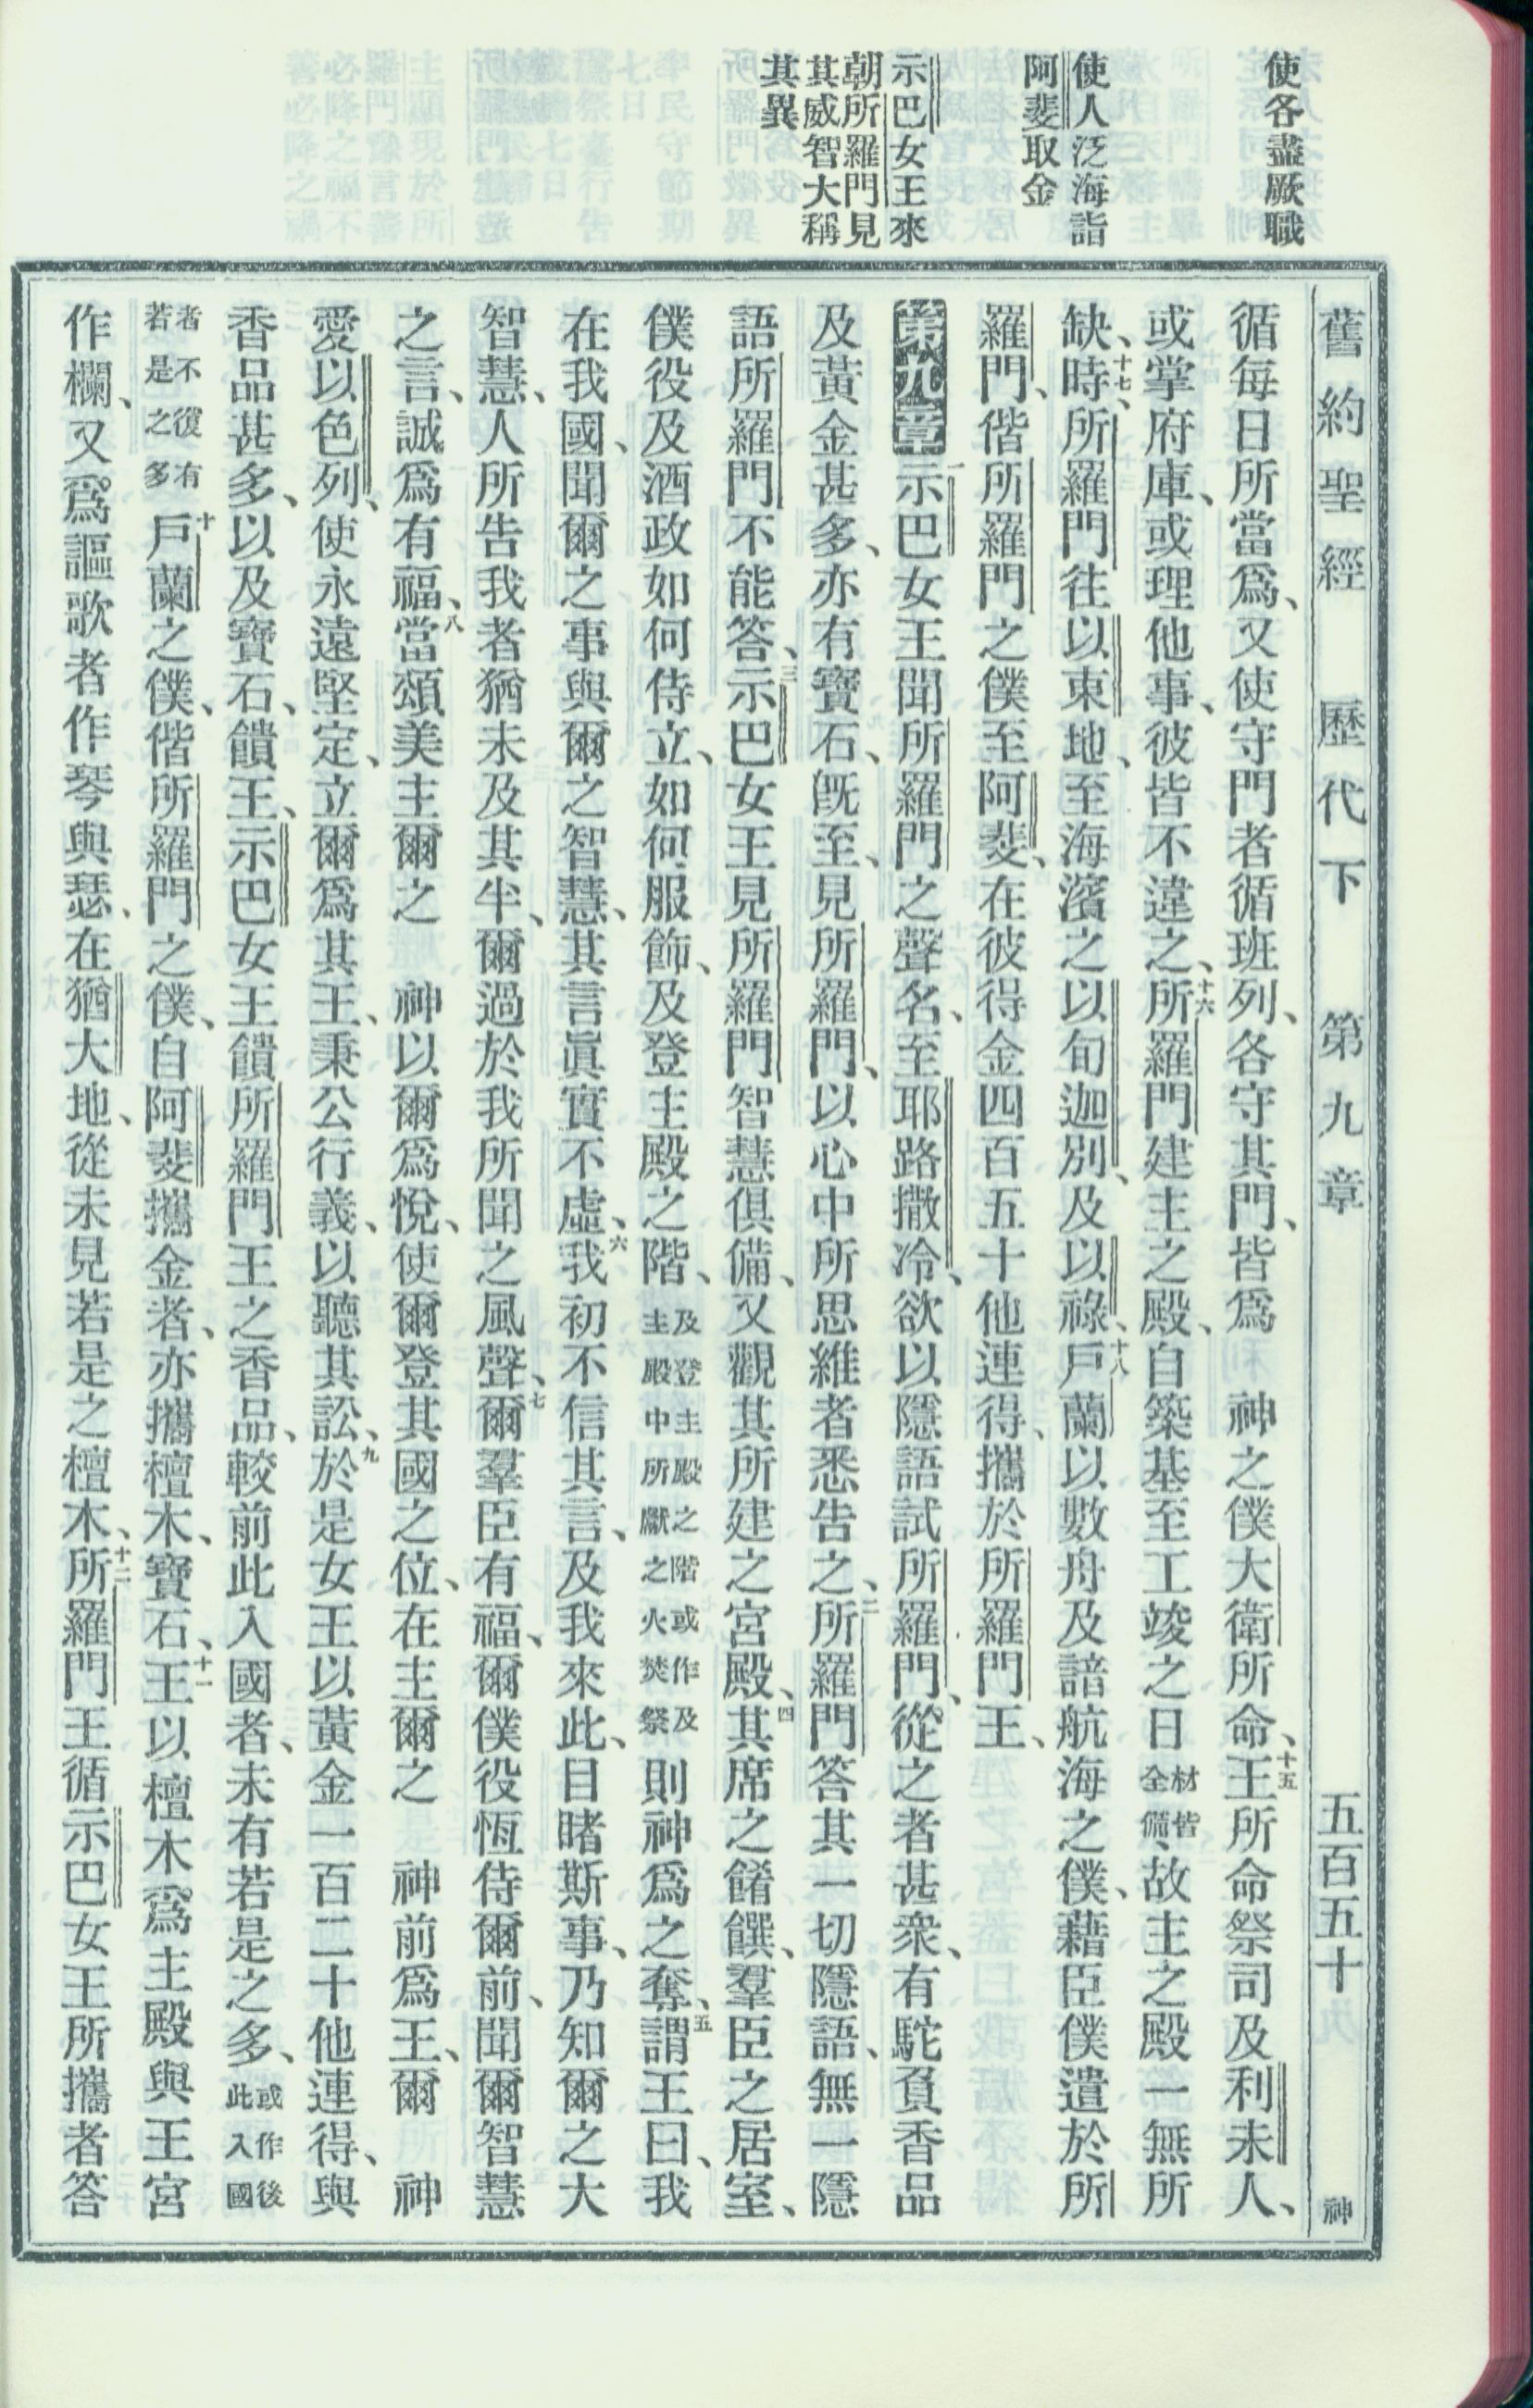 使各盡厥職
使人泛海詣
阿斐取金
示巴女王來
朝所羅門見
其威智大稱
其異
舊約聖經 歷代下 第九章 五百五十 神
循每日所當爲、又使守門者循班列、各守其門、皆爲 神之僕大衛所命、十五王所命祭司及利未人、
或掌府庫、或理他事、彼皆不違之、十六所羅門建主之殿、自築基至工竣之日材皆全備、故主之殿一無所
缺、十七時、所羅門往以東地、至海濱之以旬迦別、及以祿、十八戶蘭以數舟及諳航海之僕、藉臣僕遣於所
羅門、偕所羅門之僕至阿斐、在彼得金四百五十他連得、攜於所羅門王、
第九章 一示巴女王聞所羅門之聲名、至耶路撒冷、欲以隱語試所羅門、從之者甚衆、有駝負香品
及黃金甚多、亦有寶石、旣至、見所羅門、以心中所思維者悉告之、二所羅門答其一切隱語、無一隱
語所羅門不能答、三示巴女王見所羅門智慧俱備、又觀其所建之宮殿、四其席之餚饌、羣臣之居室、
僕役及酒政如何侍立、如何服飾、及登主殿之階、及登主殿之階或作及主殿中所獻之火焚祭則神爲之奪、五謂王曰、我
在我國、聞爾之事與爾之智慧、其言眞實不虛、六我初不信其言、及我來此、目睹斯事、乃知爾之大
智慧、人所告我者猶未及其半、爾過於我所聞之風聲、七爾羣臣有福、爾僕役恆侍爾前、聞爾智慧
之言、誠爲有福、八當頌美主爾之 神以爾爲悅、使爾登其國之位、在主爾之 神前爲王、爾 神
愛以色列、使永遠堅定、立爾爲其王、秉公行義、以聽其訟、九於是女王以黃金一百二十他連得、與
香品甚多、以及寶石、饋王、示巴女王饋所羅門王之香品、較前此入國者、未有若是之多、或作後此入國
者不復有若是之多十戶蘭之僕、偕所羅門之僕、自阿斐攜金者、亦攜檀木、寶石、十一王以檀木爲主殿與王宮
作欄、又爲謳歌者作琴與瑟、在猶大地、從未見若是之檀木、十二所羅門王循示巴女王所攜者答